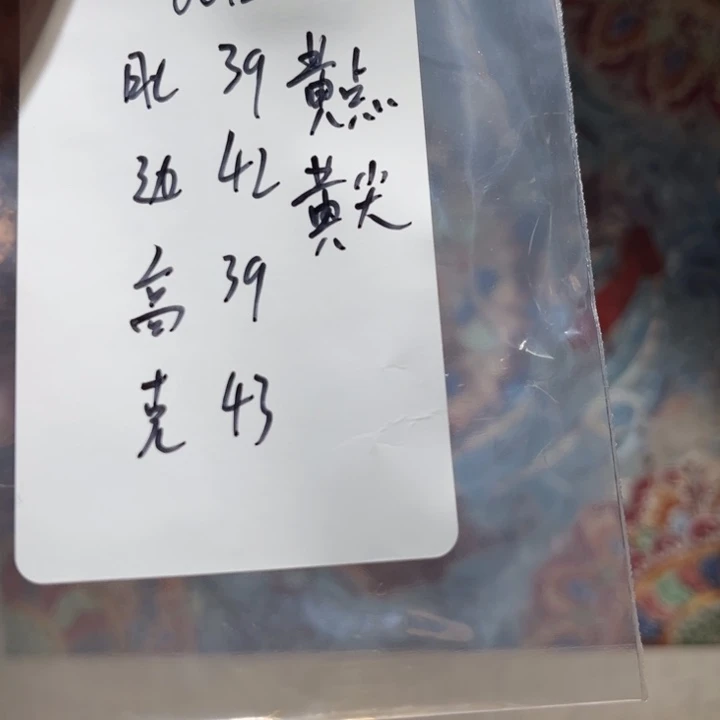 肶 39 黄点
边 42 黄尖
高 39
克 43